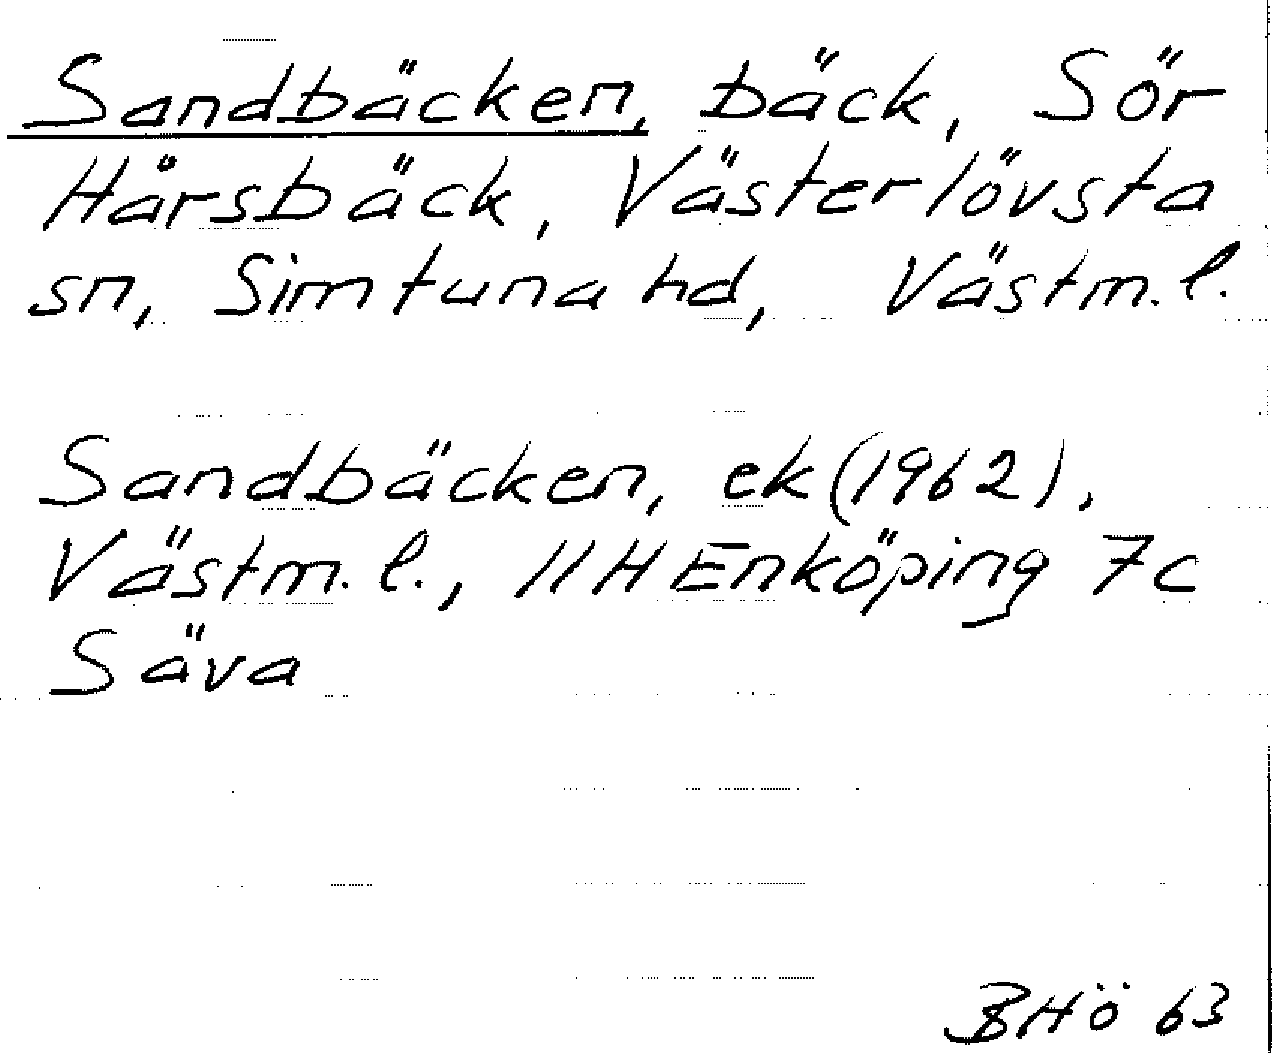 Sandbäcken, bäck, Sör
Hårsbäck, Västerlövsta
sn, Simtuna hd, Västm. l.
Sandbäcken, ek (1962),
Västm. l., 11H Enköping 7c
Säva
BHÖ 63